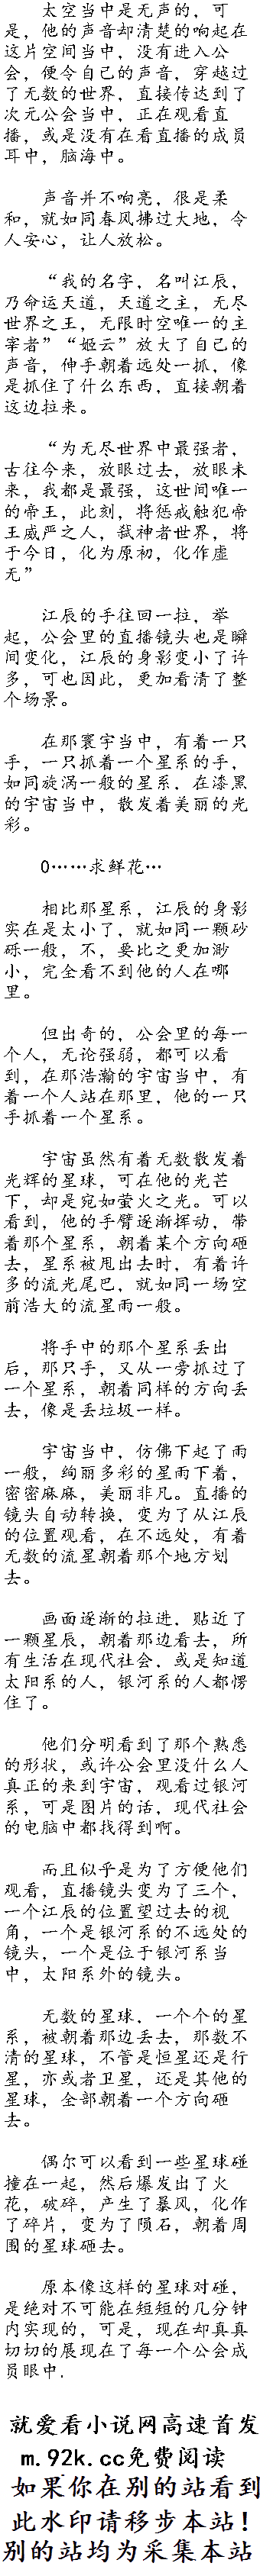 太空当中是无声的，可
是，他的声音却清楚的响起在
这片空间当中，没有进入公
会，便令自己的声音，穿越过
了无数的世界，直接传达到了
次元公会当中，正在观看直
播，或是没有在看直播的成员
耳中，脑海中。
声音并不响亮，很是柔
和，就如同春风拂过大地，令
人安心，让人放松。
“我的名字，名叫江辰，
乃命运天道，天道之主，无尽
世界之王，无限时空唯一的主
宰者”“姬云”放大了自己的
声音，伸手朝着远处一抓，像
是抓住了什么东西，直接朝着
这边拉来。
“为无尽世界中最强者，
古往今来，放眼过去，放眼未
来，我都是最强，这世间唯一
的帝王，此刻，将惩戒触犯帝
王威严之人，弑神者世界，将
于今日，化为原初，化作虚
无”
江辰的手往回一拉，举
起，公会里的直播镜头也是瞬
间变化，江辰的身影变小了许
多，可也因此，更加看清了整
个场景。
在那寰宇当中，有着一只
手，一只抓着一个星系的手，
如同旋涡一般的星系．在漆黑
的宇宙当中，散发着美丽的光
彩。
0……求鲜花…
相比那星系，江辰的身影
实在是太小了，就如同一颗砂
砾一般，不，要比之更加渺
小，完全看不到他的人在哪
里。
但出奇的，公会里的每一
个人，无论强弱，都可以看
到，在那浩瀚的宇宙当中，有
着一个人站在那里，他的一只
手抓着一个星系。
宇宙虽然有着无数散发着
光辉的星球，可在他的光芒
下，却是宛如萤火之光。可以
看到，他的手臂逐渐挥动，带
着那个星系，朝着某个方向砸
去，星系被甩出去时，有着许
多的流光尾巴，就如同一场空
前浩大的流星雨一般。
将手中的那个星系丢出
后，那只手，又从一旁抓过了
一个星系，朝着同样的方向丢
去，像是丢垃圾一样。
宇宙当中，仿佛下起了雨
一般，绚丽多彩的星雨下着，
密密麻麻，美丽非凡。直播的
镜头自动转换，变为了从江辰
的位置观看，在不远处，有着
无数的流星朝着那个地方划
去。
画面逐渐的拉进．贴近了
一颗星辰，朝着那边看去，所
有生活在现代社会．或是知道
太阳系的人，银河系的人都愣
住了。
他们分明看到了那个熟悉
的形状，或许公会里没什么人
真正的来到宇宙，观看过银河
系，可是图片的话，现代社会
的电脑中都找得到啊。
而且似乎是为了方便他们
观看，直播镜头变为了三个，
一个江辰的位置望过去的视
角，一个是银河系的不远处的
镜头，一个是位于银河系当
中，太阳系外的镜头。
无数的星球．一个个的星
系，被朝着那边丢去，那数不
清的星球，不管是恒星还是行
星，亦或者卫星，还是其他的
星球，全部朝着一个方向砸
去。
偶尔可以看到一些星球碰
撞在一起，然后爆发出了火
花，破碎，产生了暴风，化作
了碎片，变为了陨石，朝着周
围的星球砸去。
原本像这样的星球对碰，
是绝对不可能在短短的几分钟
内实现的，可是，现在却真真
切切的展现在了每一个公会成
员眼中．
就爱看小说网高速首发
m.92k.cc免费阅读
如果你在别的站看到
此水印请移步本站！
别的站均为采集本站